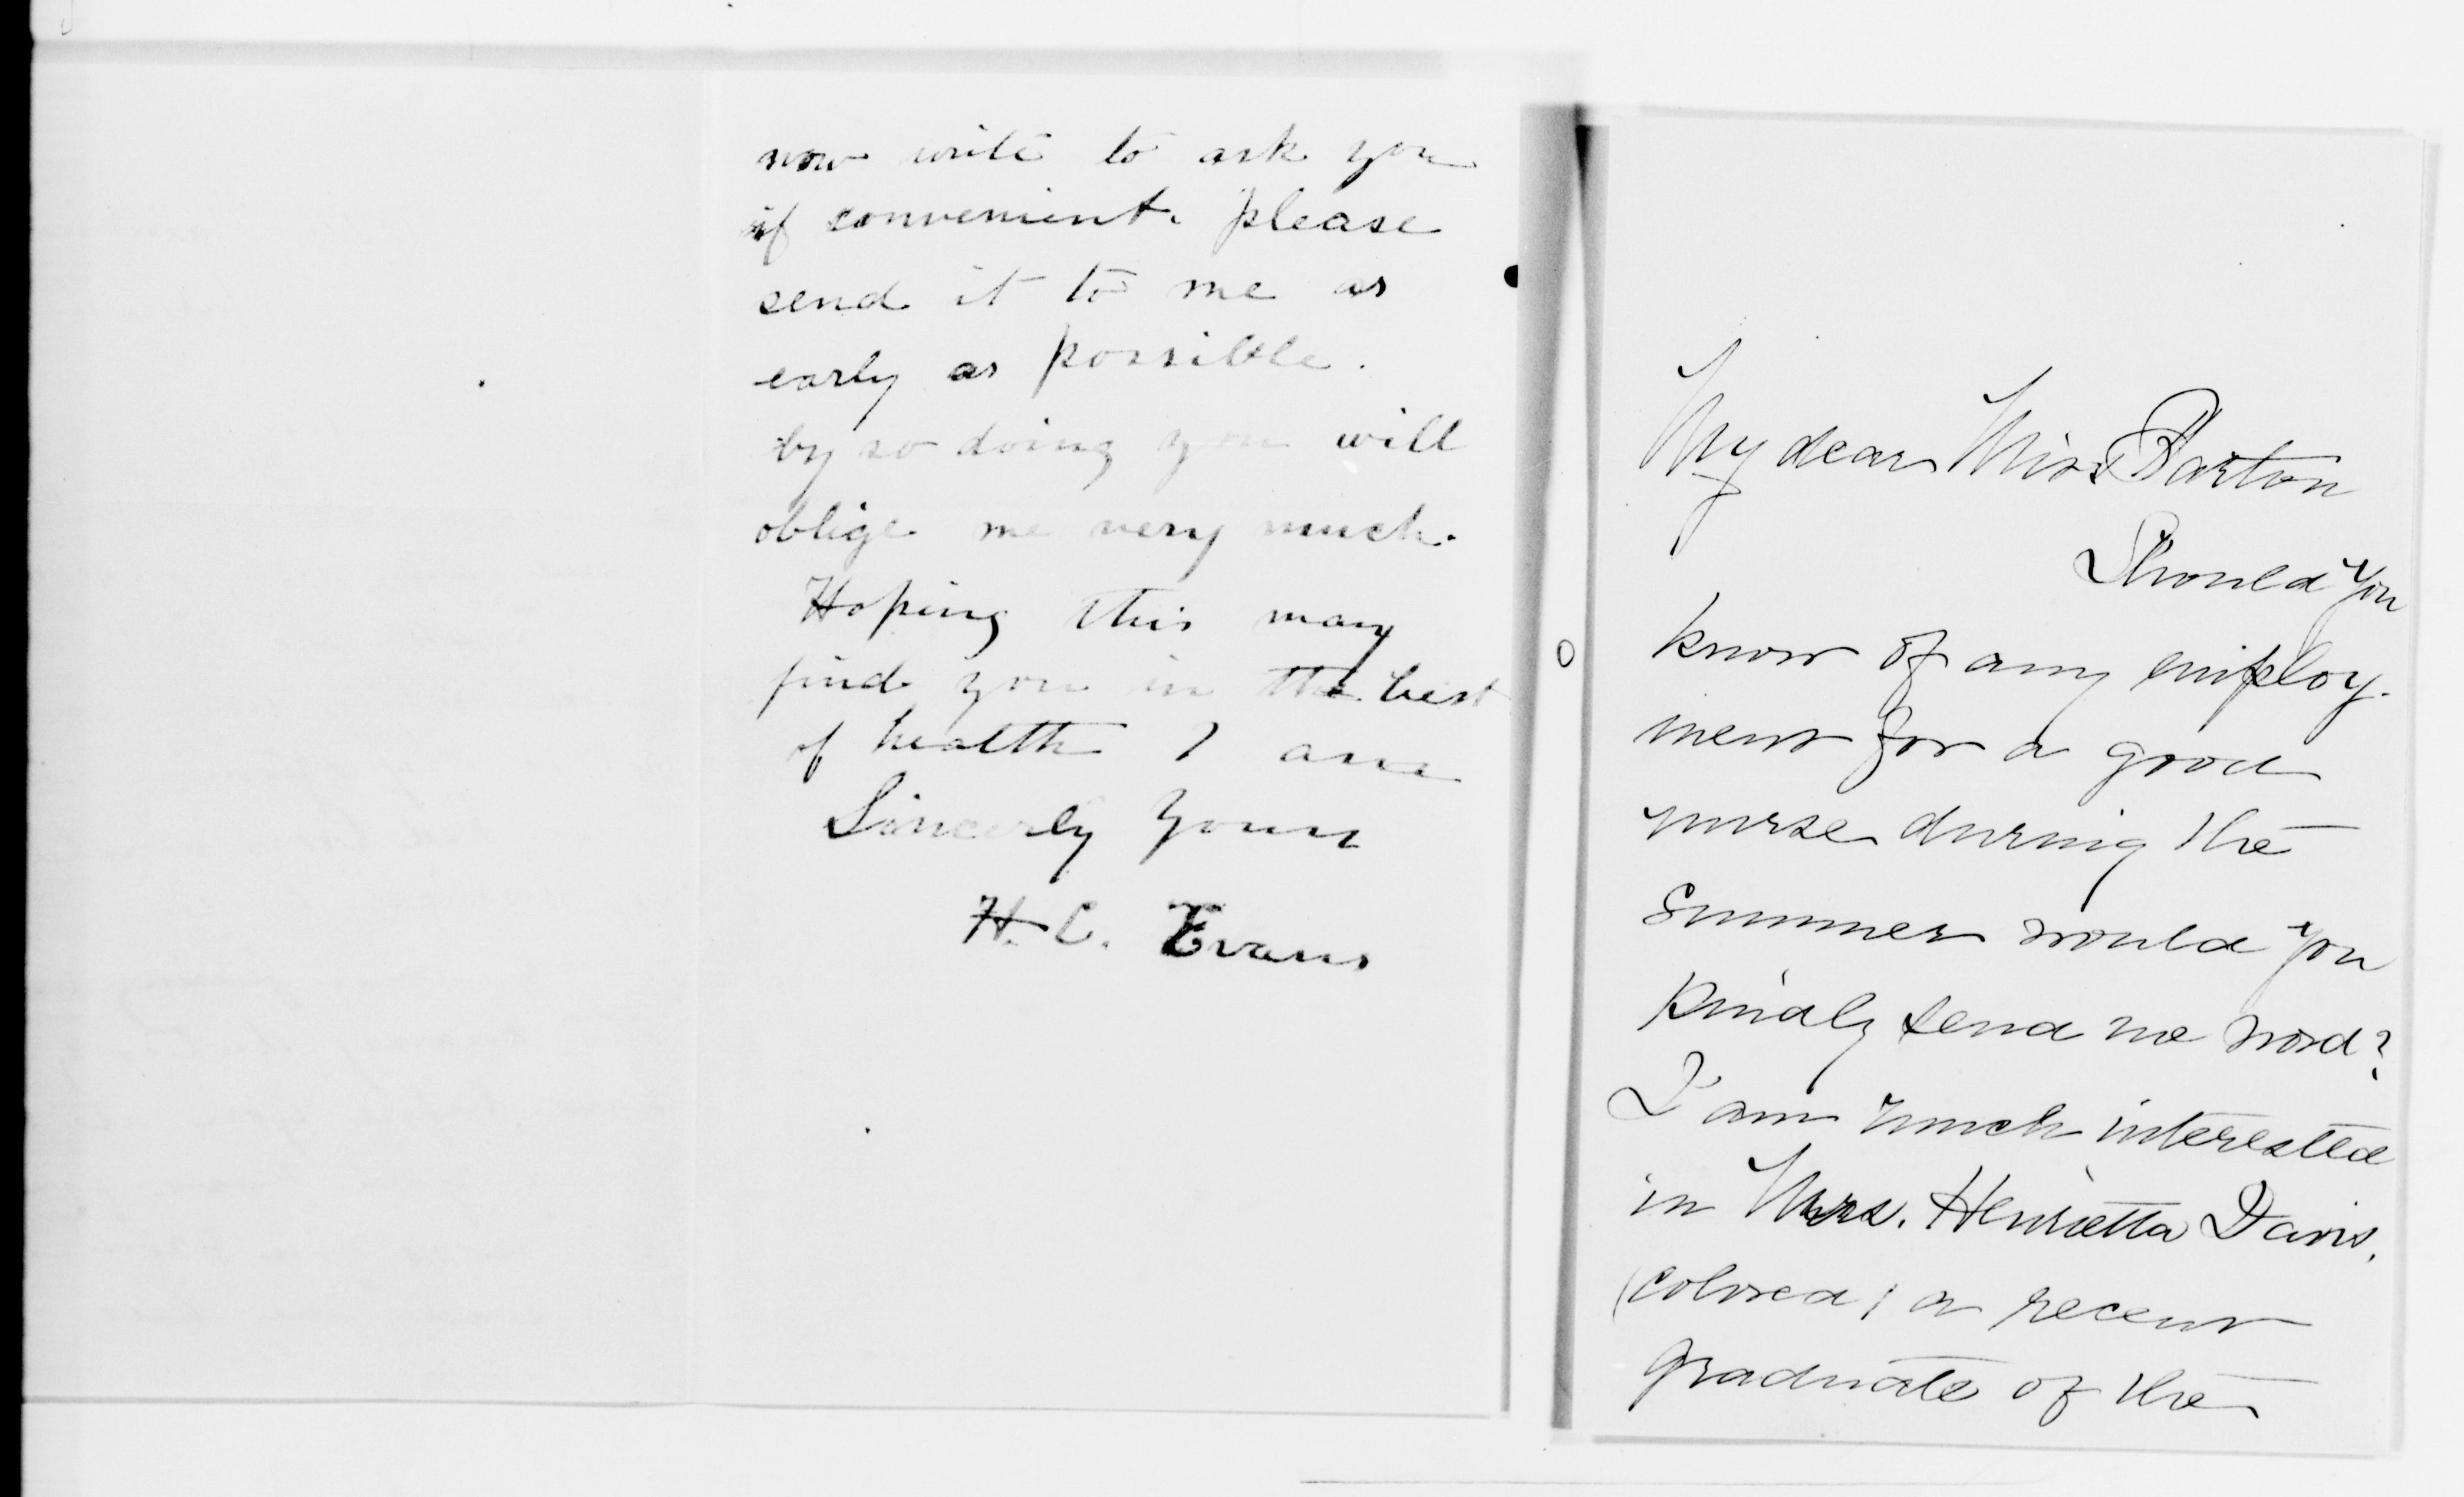 now write to ask you
if convenient. please
send it to me as
early as possible.
by so doing you will
oblige me very much.
Hoping this may
find you in the best
of health I am
Sincerly yours
H. C. Evans
My dear Miss Barton
Should you
know of any employ-
ment for a good
nurse during the
summer would you
kindly send me word?
I am much interested
in Mrs. Henrietta Davis,
(colored) a recent
graduate of the